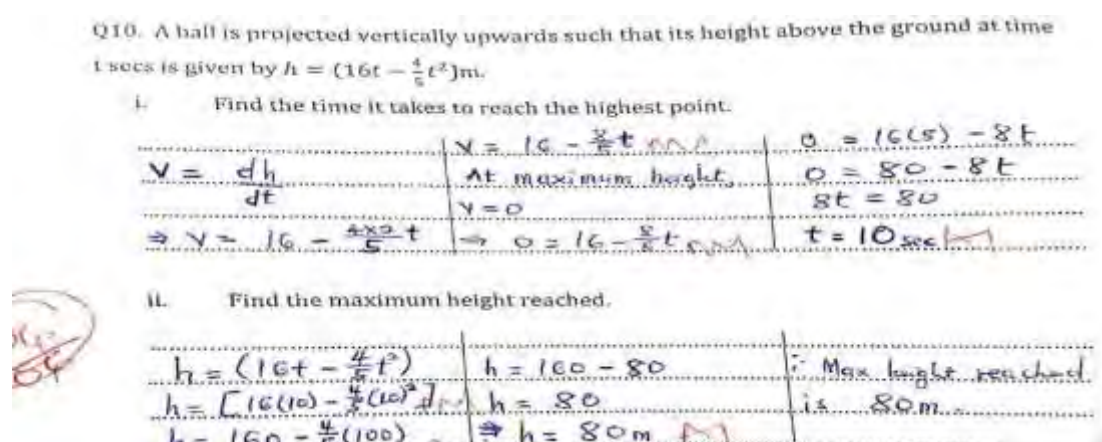 Q10. A ball is projected vertically upwards such that its height above the ground at time
t secs is given by h = (16t − 4/5 t²)m.
i. Find the time it takes to reach the highest point.
V = dh/dt
⇒ V = 16 − 4×2/5 t
V = 16 − 8/5 t
At maximum height,
V = 0
⇒ 0 = 16 − 8/5 t
0 = 16(5) − 8t
0 = 80 − 8t
8t = 80
t = 10 sec
ii. Find the maximum height reached.
h = (16t − 4/5 t²)
h = [16(10) − 4/5 (10)²]
h = 160 − 4/5 (100)
h = 160 − 80
h = 80
⇒ h = 80m
∴ Max height reached
is 80m